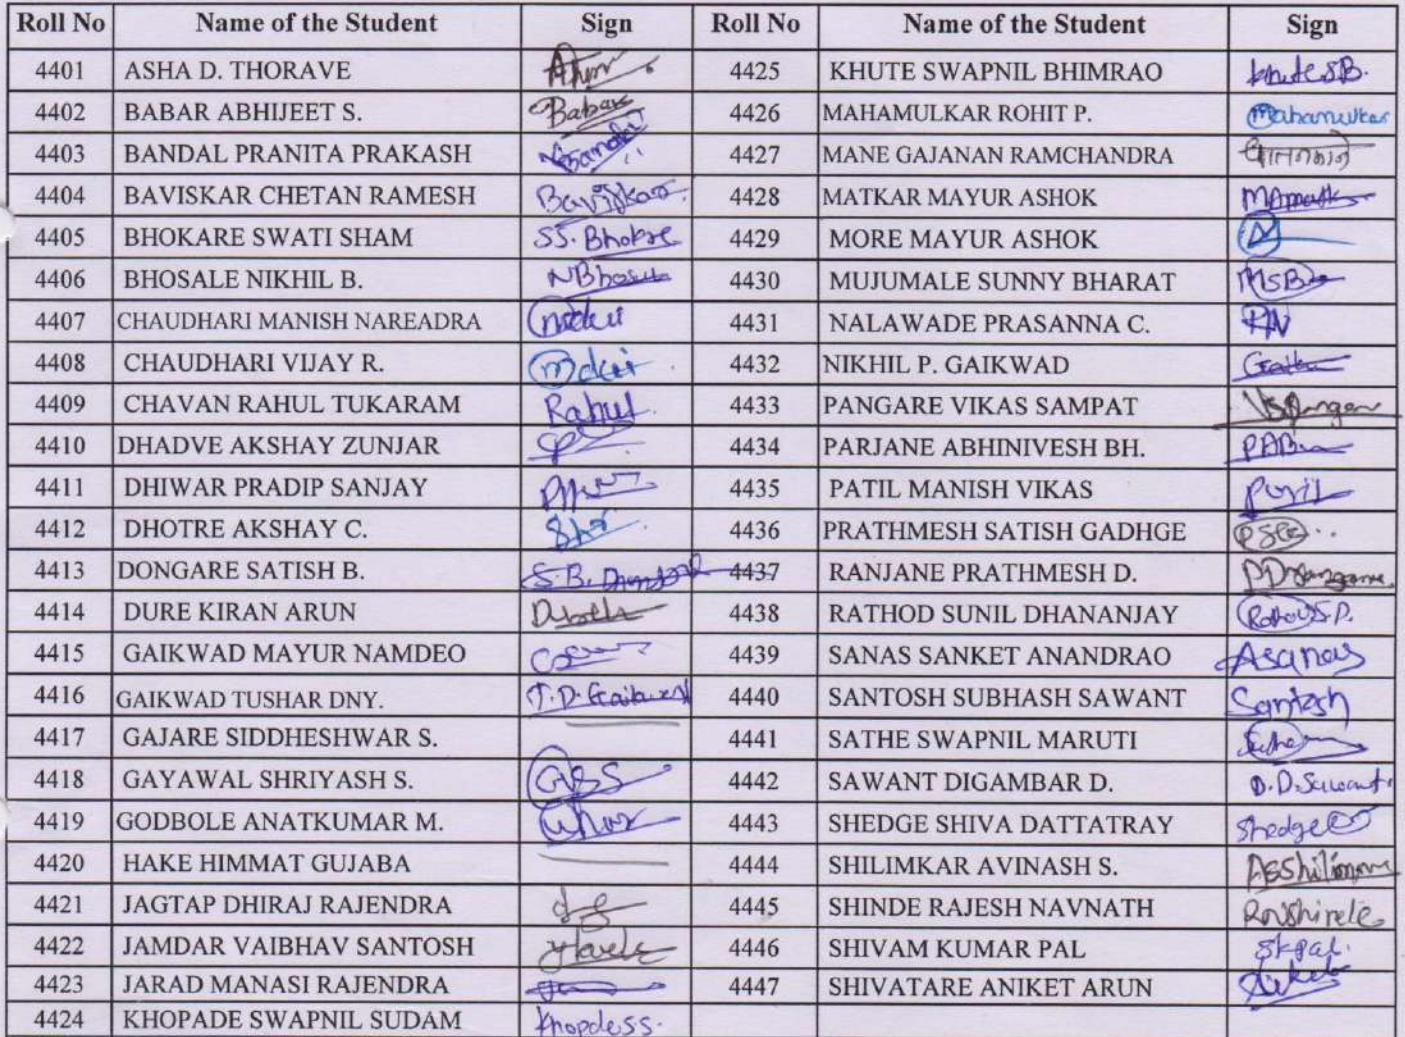 Roll No Name of the Student Sign Roll No Name of the Student Sign
4401 ASHA D. THORAVE 4425 KHUTE SWAPNIL BHIMRAO KhuteSB.
4402 BABAR ABHIJEET S. Babar 4426 MAHAMULKAR ROHIT P. Mahamulkar
4403 BANDAL PRANITA PRAKASH 4427 MANE GAJANAN RAMCHANDRA
4404 BAVISKAR CHETAN RAMESH Baviskar 4428 MATKAR MAYUR ASHOK
4405 BHOKARE SWATI SHAM SS. Bhokre 4429 MORE MAYUR ASHOK
4406 BHOSALE NIKHIL B. NBhosale 4430 MUJUMALE SUNNY BHARAT MSB
4407 CHAUDHARI MANISH NAREADRA 4431 NALAWADE PRASANNA C. PN
4408 CHAUDHARI VIJAY R. 4432 NIKHIL P. GAIKWAD
4409 CHAVAN RAHUL TUKARAM Rahul 4433 PANGARE VIKAS SAMPAT
4410 DHADVE AKSHAY ZUNJAR 4434 PARJANE ABHINIVESH BH. PAB
4411 DHIWAR PRADIP SANJAY 4435 PATIL MANISH VIKAS
4412 DHOTRE AKSHAY C. 4436 PRATHMESH SATISH GADHGE
4413 DONGARE SATISH B. S.B. 4437 RANJANE PRATHMESH D.
4414 DURE KIRAN ARUN 4438 RATHOD SUNIL DHANANJAY
4415 GAIKWAD MAYUR NAMDEO 4439 SANAS SANKET ANANDRAO
4416 GAIKWAD TUSHAR DNY. T.D. Gaikwad 4440 SANTOSH SUBHASH SAWANT Santosh
4417 GAJARE SIDDHESHWAR S. 4441 SATHE SWAPNIL MARUTI
4418 GAYAWAL SHRIYASH S. GSS 4442 SAWANT DIGAMBAR D. D.D.Sawant
4419 GODBOLE ANATKUMAR M. 4443 SHEDGE SHIVA DATTATRAY Shedge
4420 HAKE HIMMAT GUJABA 4444 SHILIMKAR AVINASH S.
4421 JAGTAP DHIRAJ RAJENDRA 4445 SHINDE RAJESH NAVNATH
4422 JAMDAR VAIBHAV SANTOSH 4446 SHIVAM KUMAR PAL skpal.
4423 JARAD MANASI RAJENDRA 4447 SHIVATARE ANIKET ARUN
4424 KHOPADE SWAPNIL SUDAM Khopdess.